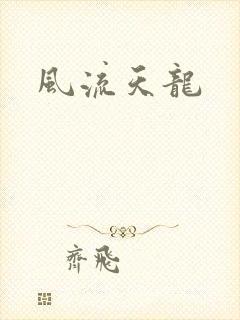 風流天龍
齊飛